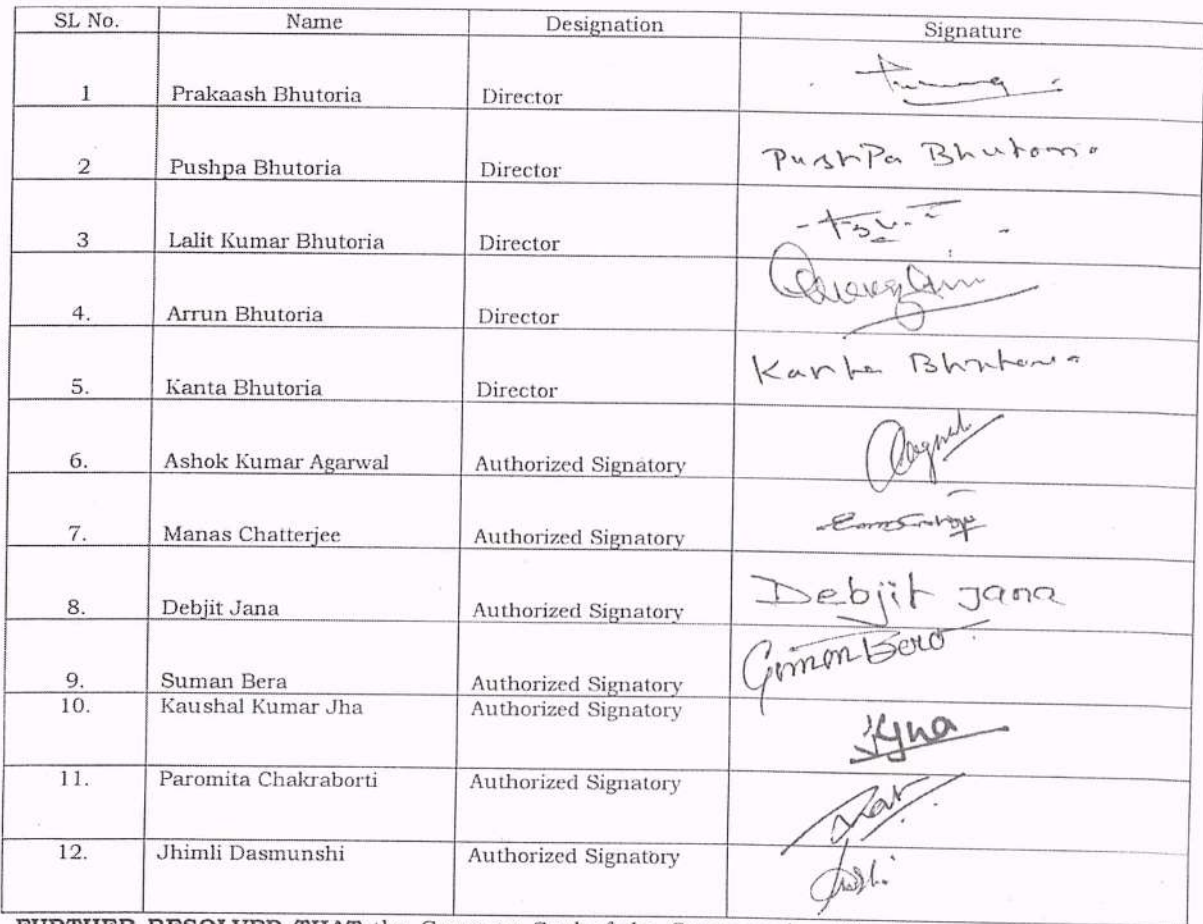 SL No. Name Designation Signature
1 Prakaash Bhutoria Director
2 Pushpa Bhutoria Director PushPa Bhutoria
3 Lalit Kumar Bhutoria Director
4. Arrun Bhutoria Director
5. Kanta Bhutoria Director Kanta Bhutoria
6. Ashok Kumar Agarwal Authorized Signatory
7. Manas Chatterjee Authorized Signatory
8. Debjit Jana Authorized Signatory Debjit Jana
9. Suman Bera Authorized Signatory
10. Kaushal Kumar Jha Authorized Signatory
11. Paromita Chakraborti Authorized Signatory
12. Jhimli Dasmunshi Authorized Signatory
FURTHER RESOLVED THAT the